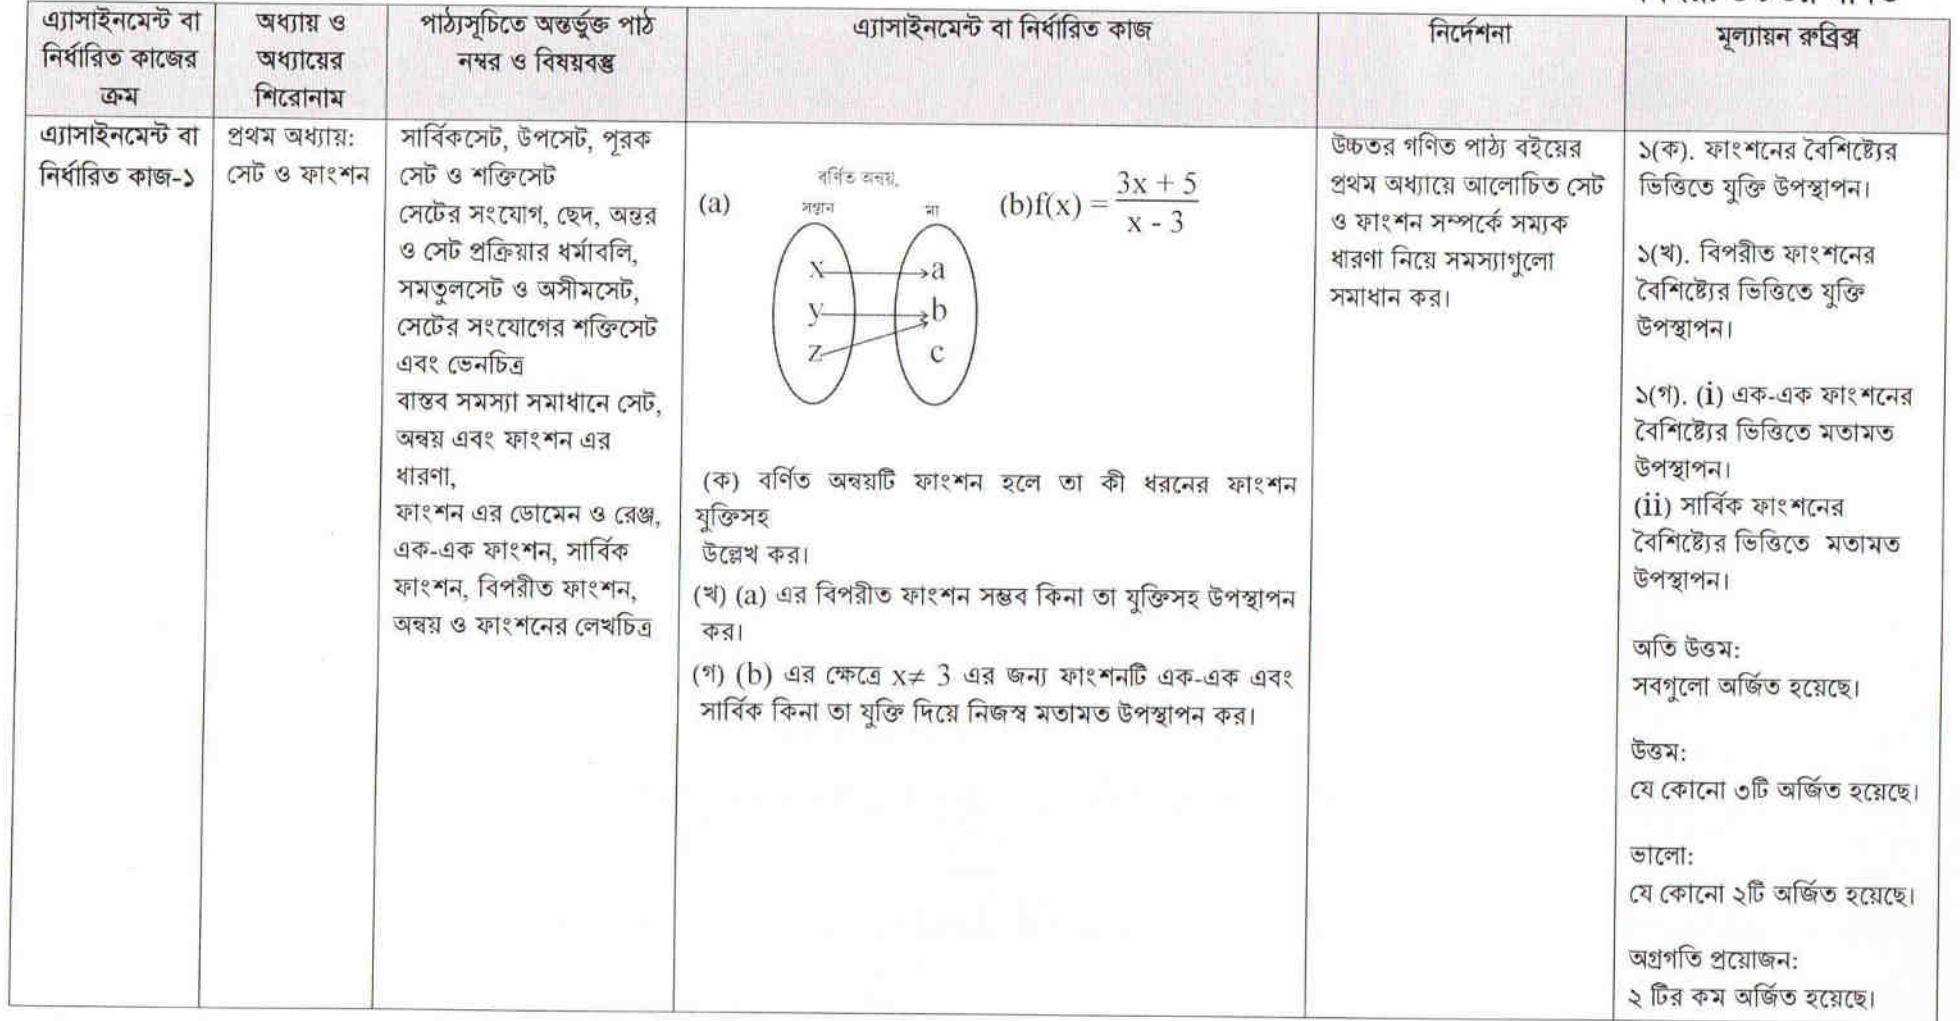 এ্যাসাইনমেন্ট বা
নির্ধারিত কাজের
ক্রম
অধ্যায় ও
অধ্যায়ের
শিরোনাম
পাঠ্যসূচিতে অন্তর্ভুক্ত পাঠ
নম্বর ও বিষয়বস্তু
এ্যাসাইনমেন্ট বা নির্ধারিত কাজ
নির্দেশনা
মূল্যায়ন রুব্রিক্স
এ্যাসাইনমেন্ট বা
নির্ধারিত কাজ-১
প্রথম অধ্যায়:
সেট ও ফাংশন
সার্বিকসেট, উপসেট, পূরক
সেট ও শক্তিসেট
সেটের সংযোগ, ছেদ, অন্তর
ও সেট প্রক্রিয়ার ধর্মাবলি,
সমতুলসেট ও অসীমসেট,
সেটের সংযোগের শক্তিসেট
এবং ভেনচিত্র
বাস্তব সমস্যা সমাধানে সেট,
অন্বয় এবং ফাংশন এর
ধারণা,
ফাংশন এর ডোমেন ও রেঞ্জ,
এক-এক ফাংশন, সার্বিক
ফাংশন, বিপরীত ফাংশন,
অন্বয় ও ফাংশনের লেখচিত্র
বর্ণিত অন্বয়,
(a) সন্তান মা (b)f(x) = (3x + 5)/(x - 3)
x a
y b
z c
(ক) বর্ণিত অন্বয়টি ফাংশন হলে তা কী ধরনের ফাংশন
যুক্তিসহ
উল্লেখ কর।
(খ) (a) এর বিপরীত ফাংশন সম্ভব কিনা তা যুক্তিসহ উপস্থাপন
কর।
(গ) (b) এর ক্ষেত্রে x≠ 3 এর জন্য ফাংশনটি এক-এক এবং
সার্বিক কিনা তা যুক্তি দিয়ে নিজস্ব মতামত উপস্থাপন কর।
উচ্চতর গণিত পাঠ্য বইয়ের
প্রথম অধ্যায়ে আলোচিত সেট
ও ফাংশন সম্পর্কে সম্যক
ধারণা নিয়ে সমস্যাগুলো
সমাধান কর।
১(ক). ফাংশনের বৈশিষ্ট্যের
ভিত্তিতে যুক্তি উপস্থাপন।
১(খ). বিপরীত ফাংশনের
বৈশিষ্ট্যের ভিত্তিতে যুক্তি
উপস্থাপন।
১(গ). (i) এক-এক ফাংশনের
বৈশিষ্ট্যের ভিত্তিতে মতামত
উপস্থাপন।
(ii) সার্বিক ফাংশনের
বৈশিষ্ট্যের ভিত্তিতে মতামত
উপস্থাপন।
অতি উত্তম:
সবগুলো অর্জিত হয়েছে।
উত্তম:
যে কোনো ৩টি অর্জিত হয়েছে।
ভালো:
যে কোনো ২টি অর্জিত হয়েছে।
অগ্রগতি প্রয়োজন:
২ টির কম অর্জিত হয়েছে।